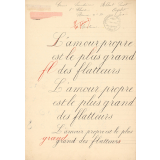 L'amour propre
est le plus grand
fl des flatteurs
L'amour propre
est le plus grand
des flatteurs
L'amour propre est le plus
grand des flatteurs